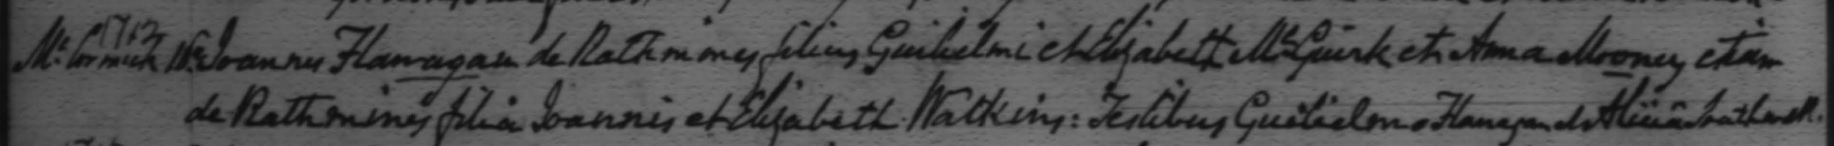 Mc Cormick 16a Joannes Flanagan de Rathmines filius Guilielmi et Elizabeth McGuirk et Anna Mooney etiam
de Rathmines filia Joannis et Elizabeth Watkins: Testibus Guilielmo Flanagan et Alicia